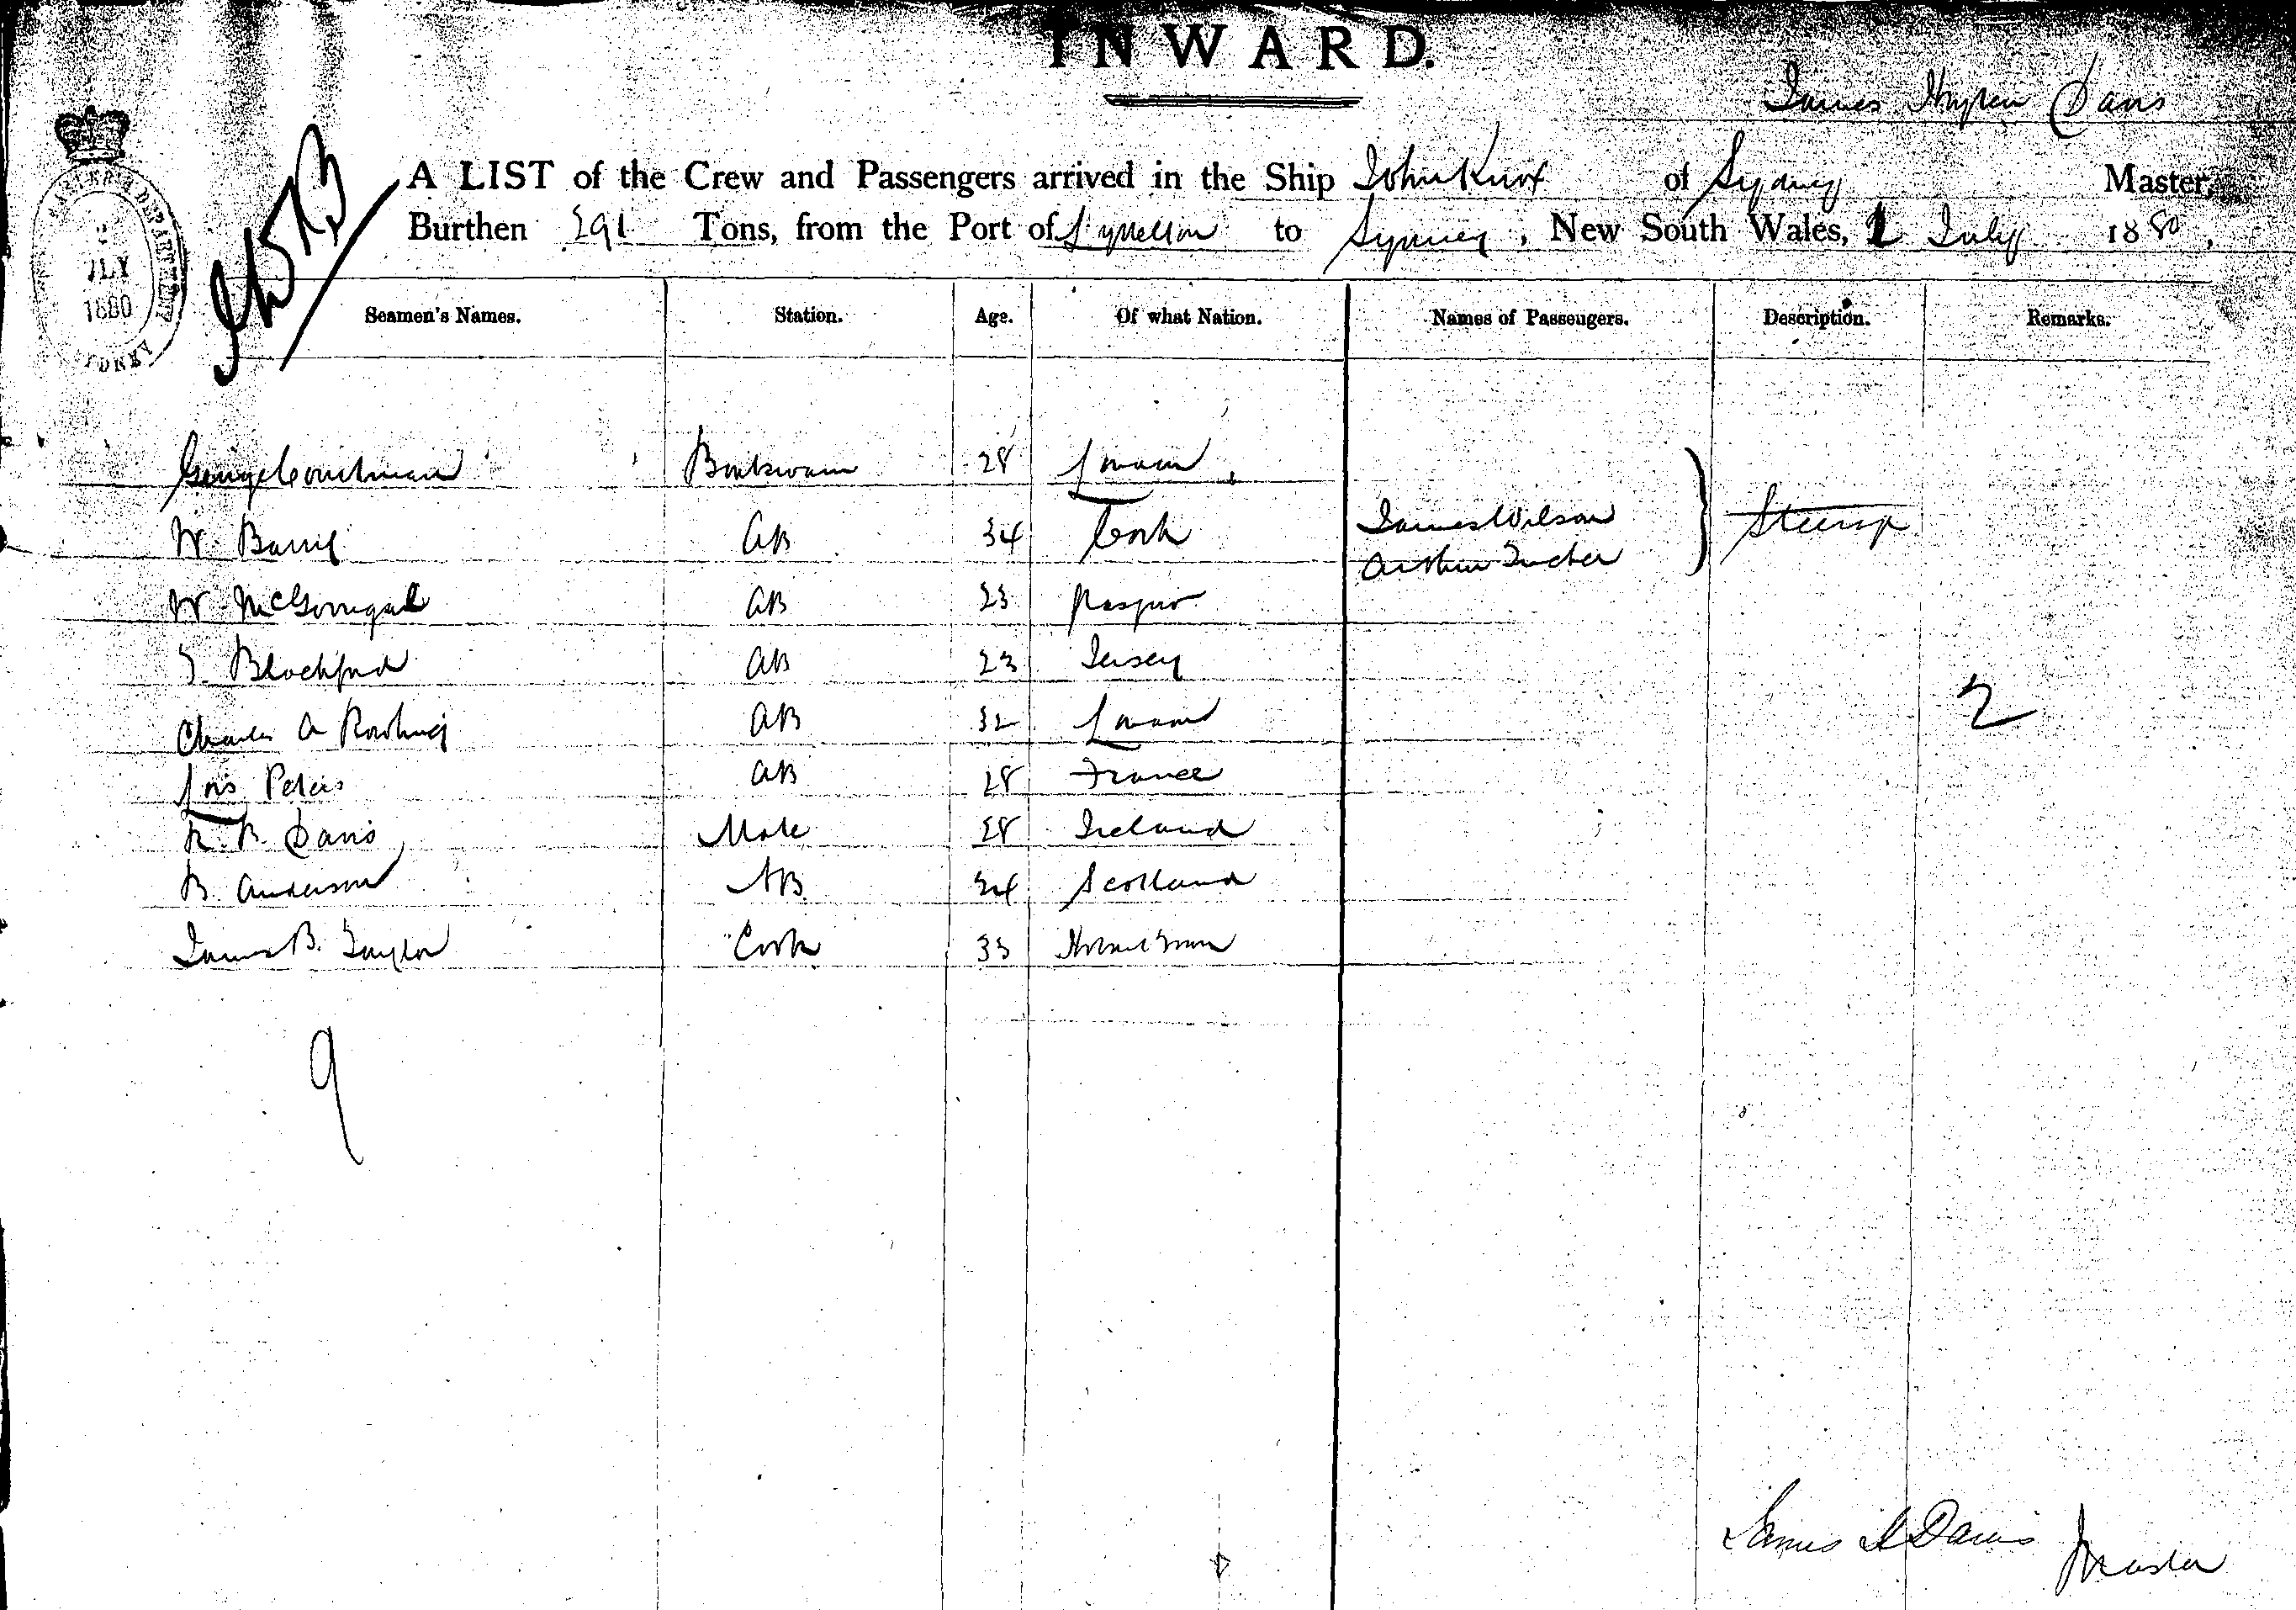 INWARD.
James Davis
A LIST of the Crew and Passengers arrived in the Ship John Knox of Sydney Master,
Burthen 291 Tons, from the Port of Lyttelton to Sydney, New South Wales, 2 July 1880,
2 JLY 1880
Seamen's Names. Station. Age. Of what Nation. Names of Passengers. Description. Remarks.
George Couchman Boatswain 28 London
W. Barry AB 34 Cork James Wilson
Arthur Tucker
W. McGonigal AB 23
Blachford AB 23 Jersey
2
Charles A AB 32 London
Peters AB 28 France
R. B. Davis Mate 28 Ireland
B. Anderson AB 34 Scotland
James B. Taylor Cook 33
9
James H Davis Master